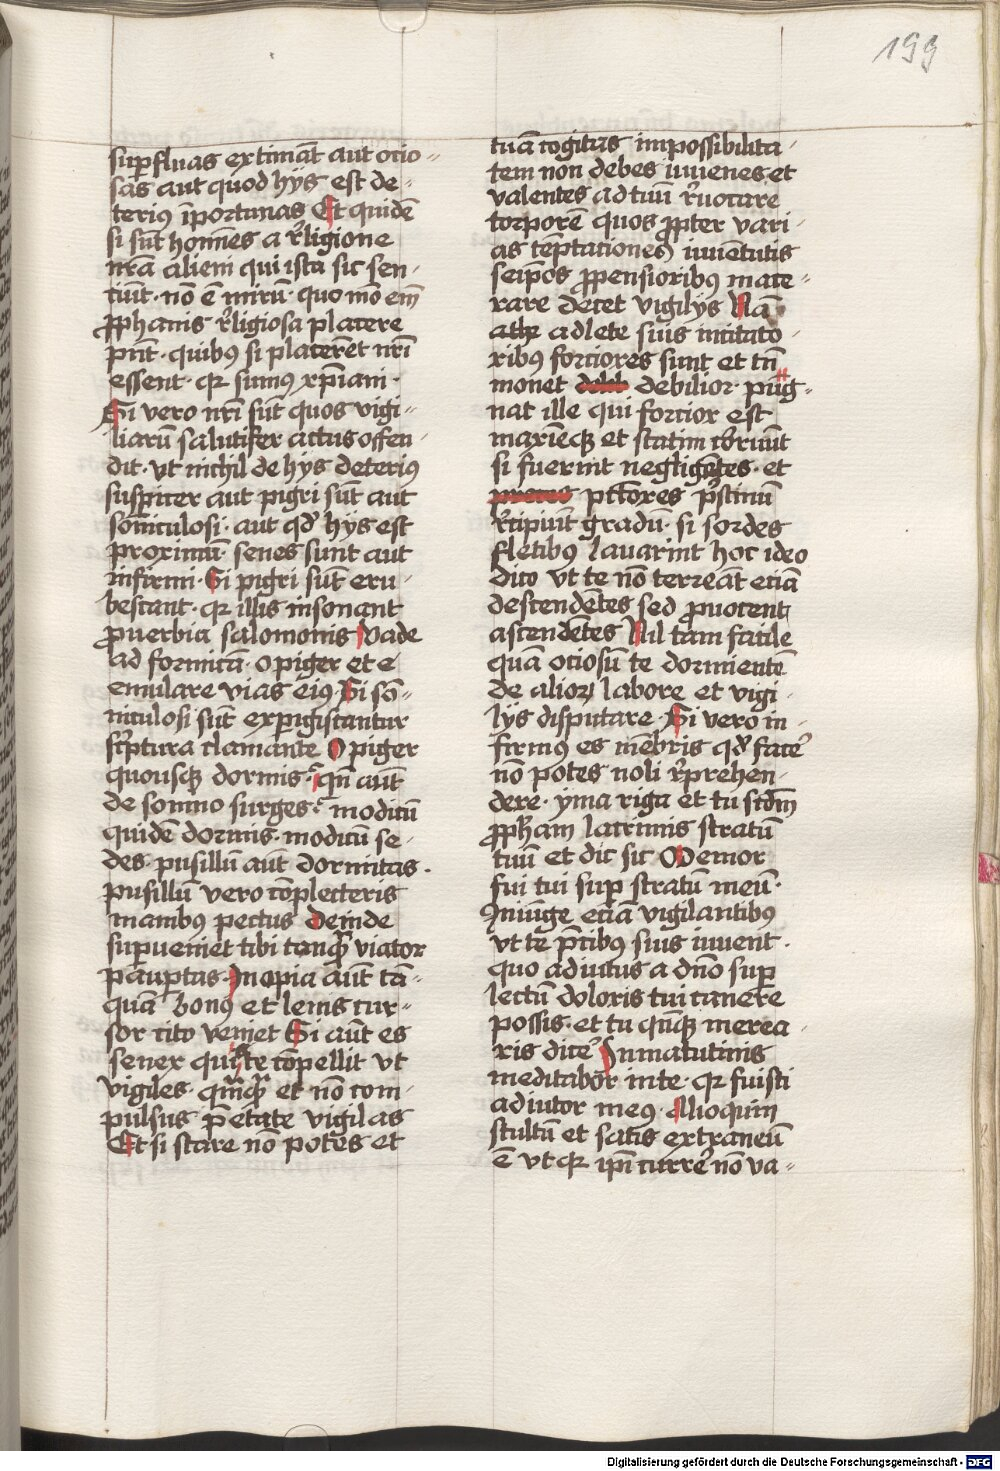 199
sup̱fluas extimāt aut ocio
sas aut quod hijs est de
teriꝰ īportunas Et quidē
si sūt homīes a rͤligione
nr̄a alieni qui ista sic sen
tiūt · nō ē mirū · quo mō em̄
ꝓphanis rͤligiosa placere
pn̄t · quibꝰ si placerēt nr̄i
essent · qꝛ sumꝰ xp̄iani ·
Si vero nr̄i sūt quos vigi
liarū salutifer actus offen
dit · vt nichil de hijs deteriꝰ
suspicer aut pigri sūt aut
sōniculosi · aut qd̕ hijs est
proximū · senes sunt aut
infirmi · Si pigri sūt eru
bescant · qꝛ illis insonant
ꝓuerbia salomonis Vade
ad formicā · o piger et e
emulare vias eiꝰ Si sō
niculosi sūt exp̱giscantur
scͥptura clamante O piger
quousqꝫ dormis · qn̄ aūt
de sōmno surges · modicū
quidē dormis · modicū se
des · pusillū aut dormitas ·
pusillū vero cōplecteris
manibꝰ pectus Deinde
sup̱ueniet tibi tanqͣ viator
paup̱tas · Inopia aūt tā
quā bonꝰ et lenis cur
sor cito veniet Si aūt es
senex quis te cōpellit vt
vigiles · qͣmqͣ et nō com
pulsus p̄ etate vigilas
Et si stare nō potes et
tuā cogitās impossibilita
tem non debes iuuenes et
valentes ad tuū rͤuocare
torporē quos ꝓpter vari
as tēptationes iuuētutis
seip̄os ꝓpensioribꝰ mace
rare decet vigilijs Nā
athe adlete suis incitato
ribꝰ forciores sunt et tn̄
monet debilior · pūg
nat ille qui forcior est
maxīeqꝫ et statim corͤuūt
si fuerint negligētes · et
pctōres pͥstinū
rͤcipiūt gradū · si sordes
fletibꝰ lauarint hoc ideo
dico vt te nō terreāt eciā
descendētes sed ꝓuocent
ascendētes Nil tam facile
quā ociosū te dormientē
de alioꝝ labore et vigi
lijs disputare · Si vero in
firmꝰ es mēbris qd̕ facē
nō potes noli rͤprehen
dere · ymma riga et tu scd̄m
ꝓpħam lacrimis stratū
tuū et dic sic Memor
fui tui sup̱ stratū meū ·
Iniūge eciā vigilantibꝰ
vt te p̄cibꝰ suis iuuent ·
quo adiutus a dn̄o sup̱
lectū doloris tui canere
possis · et tu qn̄qꝫ merea
ris dicē In matutinis
meditabor in te · qꝛ fuisti
adiutor meꝰ Alioquin
stultū et satis extraneū
ē vt qꝛ ip̄e currē nō va
Digitalisierung gefördert durch die Deutsche Forschungsgemeinschaft - DFG